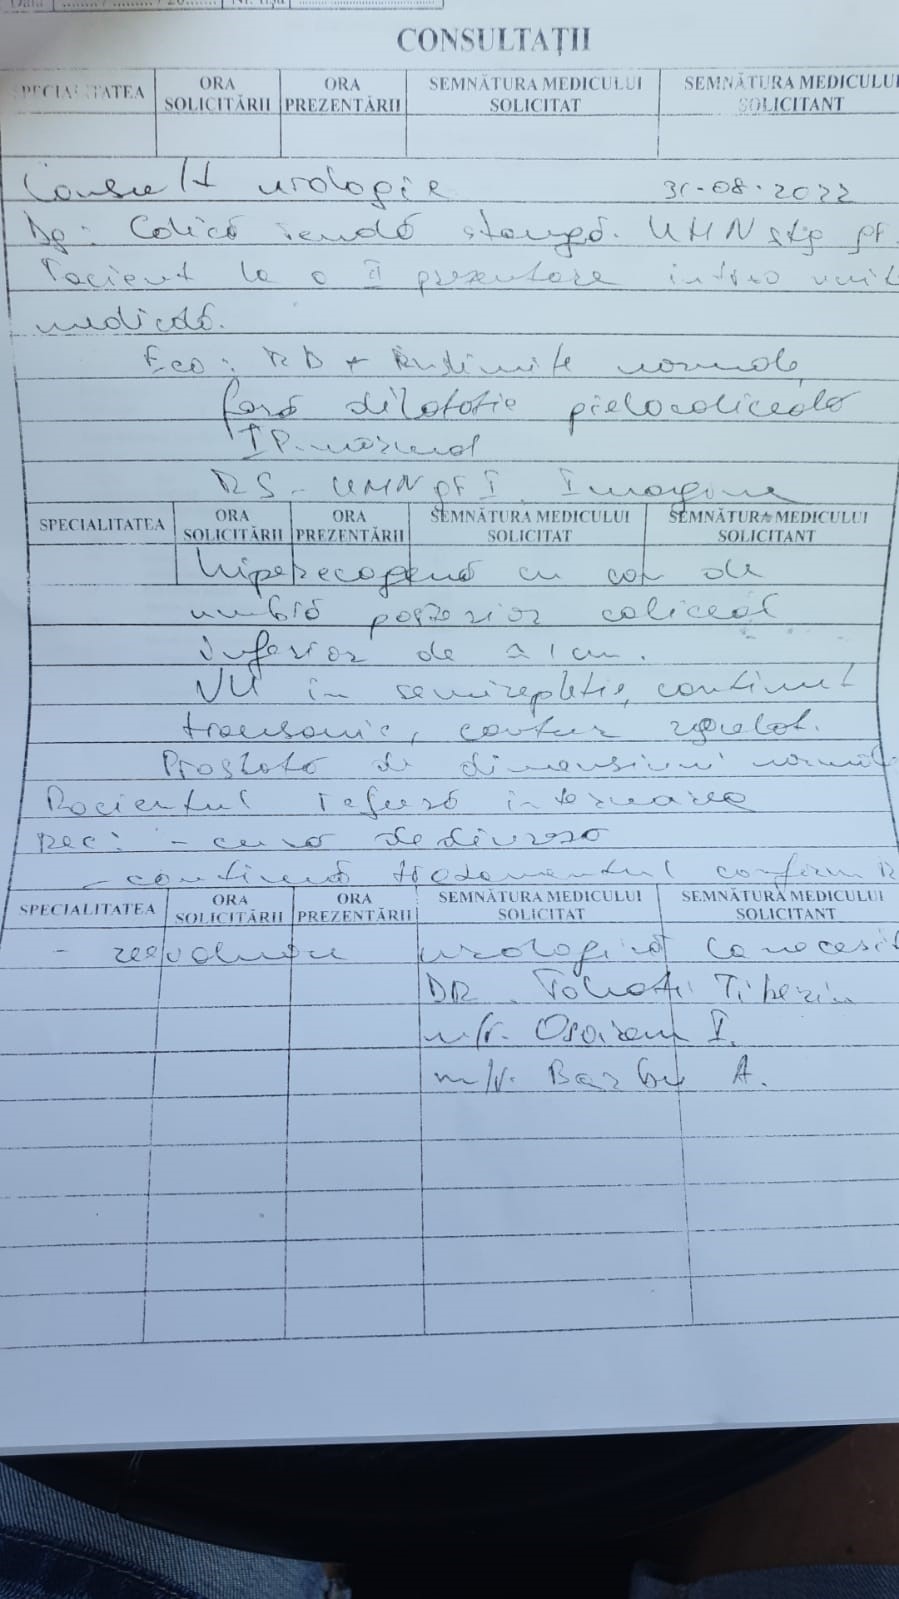 CONSULTAȚII
SPECIALITATEA ORA SOLICITĂRII ORA PREZENTĂRII SEMNĂTURA MEDICULUI SOLICITAT SEMNĂTURA MEDICULUI SOLICITANT
Consult urologie 31-08-2022
Dg: Colică renală stângă. UHN stg pf.
Pacient la o II prezentare într-o unit
medicală.
Eco: RD normale
fără dilatație pielocaliceală
IP normal
RS - UHN gr I. Imagine
SPECIALITATEA ORA SOLICITĂRII ORA PREZENTĂRII SEMNĂTURA MEDICULUI SOLICITAT SEMNĂTURA MEDICULUI SOLICITANT
hiperecogenă cu con de
umbră posterior caliceal
inferior de ≈ 1 cm.
VU în semirepleție, conținut
transonic, contur regulat.
Prostata de dimensiuni normale
Pacientul refuză internarea
Rec: - cura de diureză
- continuă tratamentul conform R
SPECIALITATEA ORA SOLICITĂRII ORA PREZENTĂRII SEMNĂTURA MEDICULUI SOLICITAT SEMNĂTURA MEDICULUI SOLICITANT
- reevaluare urologică la necesit
DR. Tiberiu
m/r. I.
m/r. Barbu A.